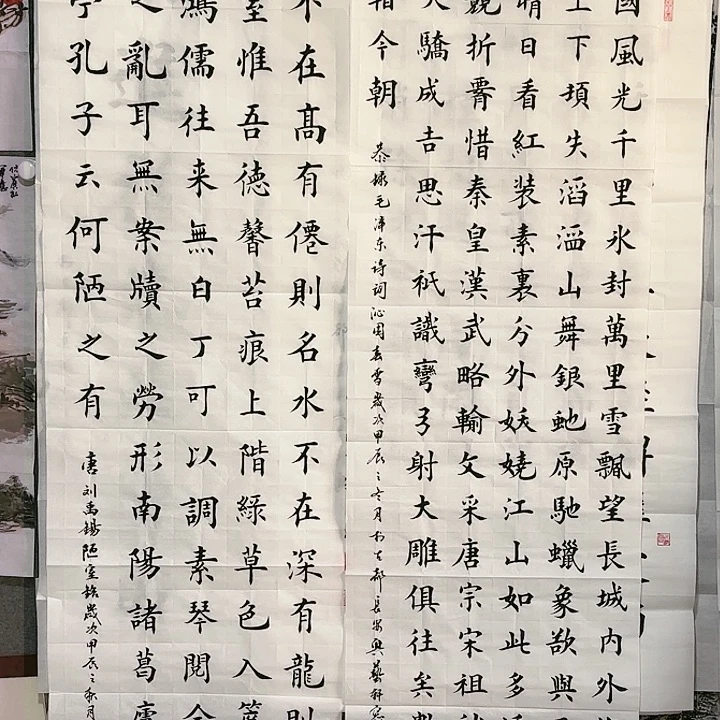 國風光千里氷封萬里雪飄望長城内外
上下頓失滔滔山舞銀虵原馳蠟象欲與
晴日看紅装素裏分外妖嬈江山如此多
競折腰惜秦皇漢武略輸文采唐宗宋祖
天驕成吉思汗祇識彎弓射大雕俱往矣數
看今朝
恭録毛泽东诗词沁园春雪歲次甲辰之冬月於古都長安興藝軒窓
不在髙有僊則名水不在深有龍則
室惟吾德馨苔痕上階綠草色入簾
鴻儒往来無白丁可以調素琴閲金
之亂耳無案牘之勞形南陽諸葛廬
亭孔子云何陋之有
唐刘禹锡陋室銘歲次甲辰之秋月